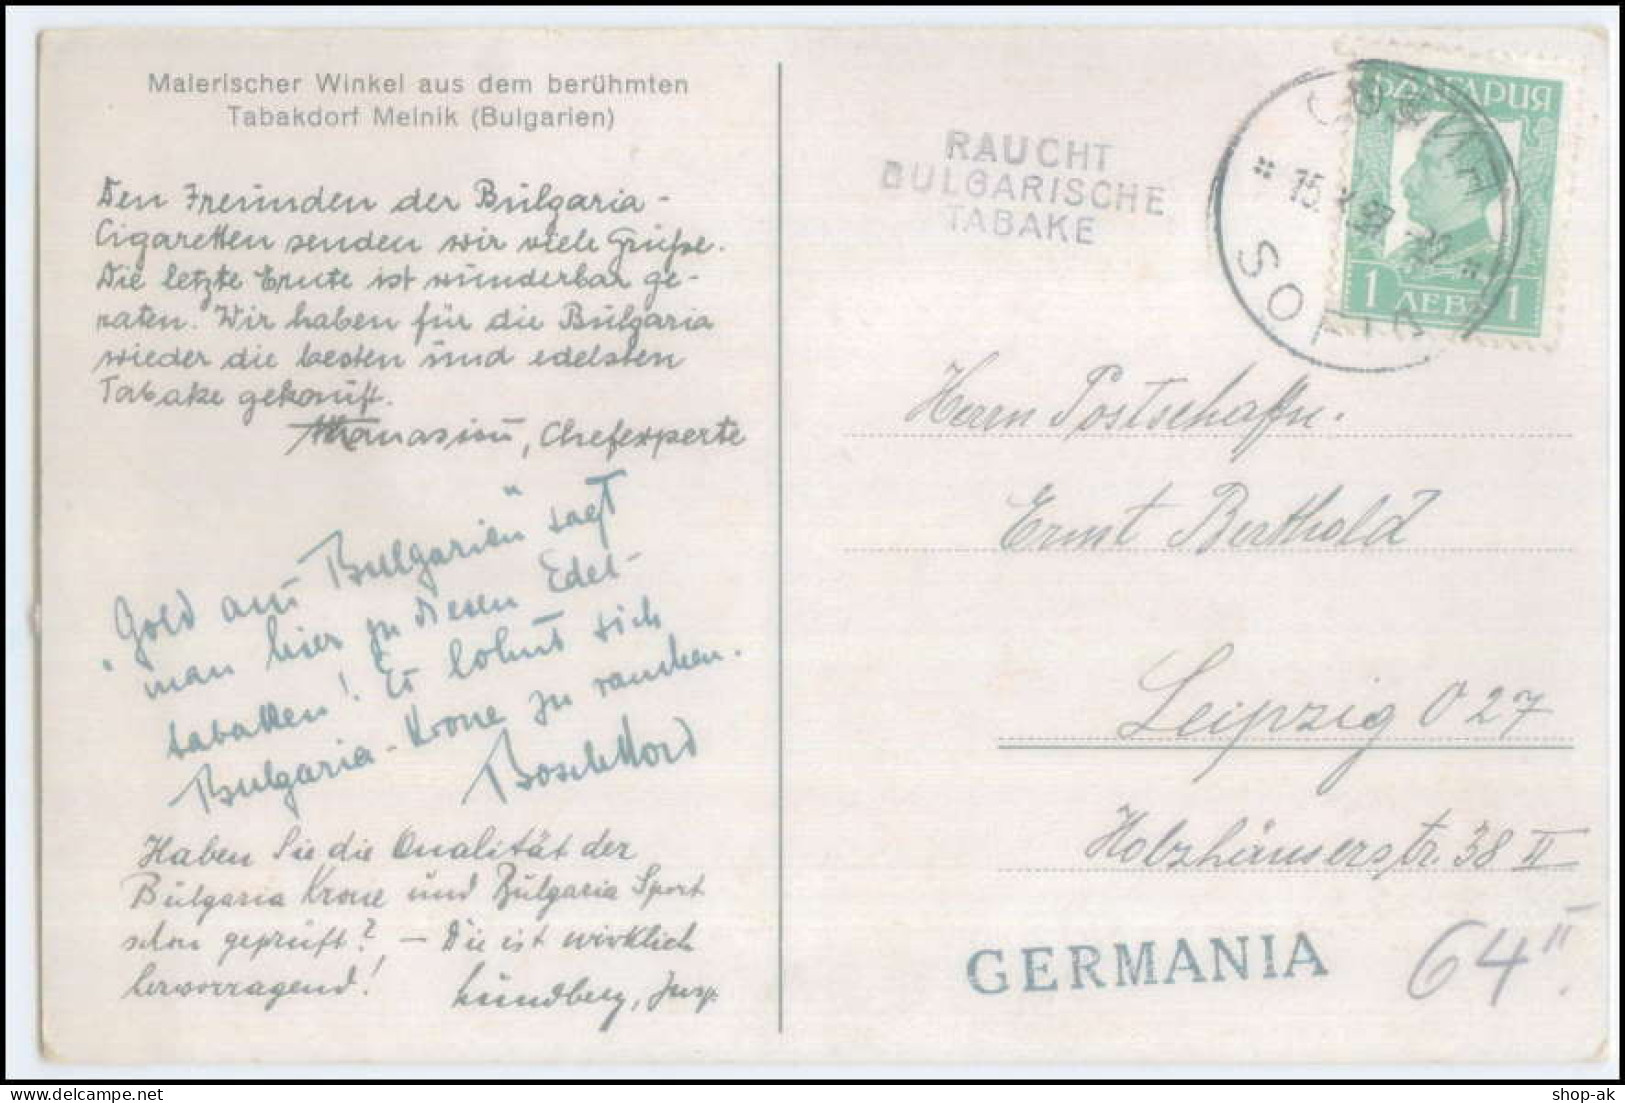 Malerischer Winkel aus dem berühmten
Tabakdorf Melnik (Bulgarien)
Den Freunden der Bulgaria-
Cigaretten senden wir viele Grüße.
Die letzte Ernte ist wunderbar ge-
raten. Wir haben für die Bulgaria
wieder die besten und edelsten
Tabake gekauft.
Athanasiou, Chefexperte
"Gold aus Bulgarien" sagt
man hier zu diesen Edel-
tabakken! Es lohnt sich
Bulgaria-Krone zu rauchen.
Haben Sie die Qualität der
Bulgaria Krone und Bulgaria Sport
schon geprüft? – Die ist wirklich
hervorragend!
Lundberg, Insp.
RAUCHT
BULGARISCHE
TABAKE
БЪЛГАРИЯ
1 ЛЕВЪ 1
СОФИЯ
15. X. 33 -12
SOFIA
Herrn Postschaffn.
Ernst Berthold
Leipzig O 27
Holzhäuserstr. 38 II
GERMANIA
64"
shop-ak